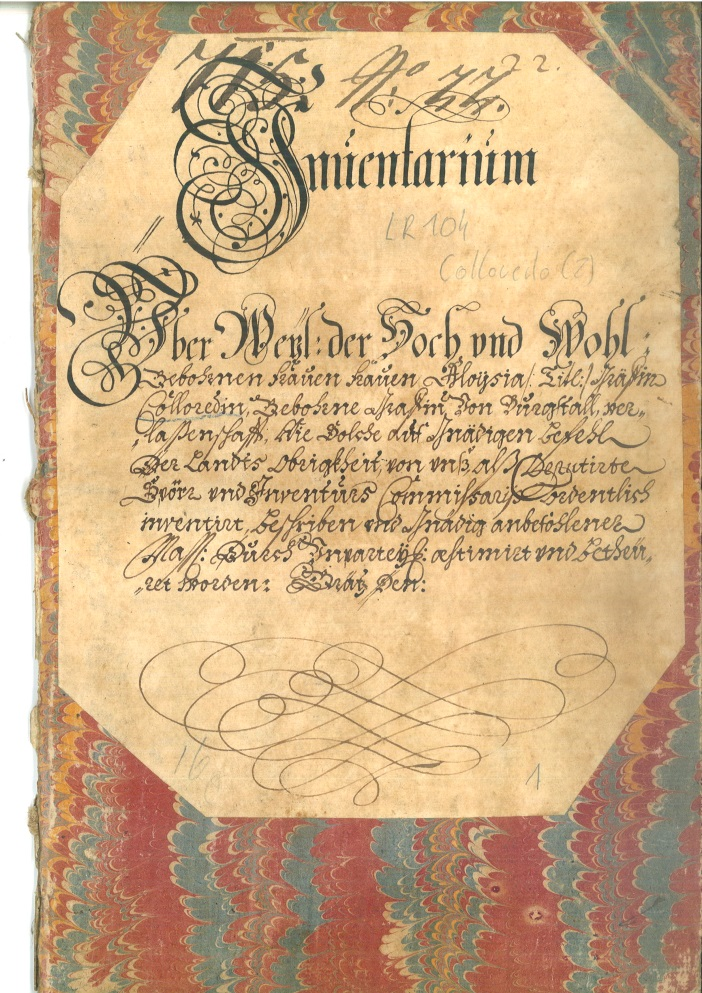 No 77.
Inuentarium
LR 104
Colloredo (2)
Über Weyl: der Hoch und Wohl:
Gebohrnen Frauen Frauen Aloysia /: Titl :/ Gräfin
Colloredin, Gebohrne Gräfin von Purgstall, ver-
-laßenschafft, Wie Solche auf Gnädigen befehl
Der Landts Obrigkheit, von unß alß Deputirte
Spörr und Inventurs Commissarijs ordentlich
inventirt, beschriben und Gnädig anbefohlener
Mass: Durch Unparteys: æstimirt und betheü-
-ret worden: Grätz Den:
1